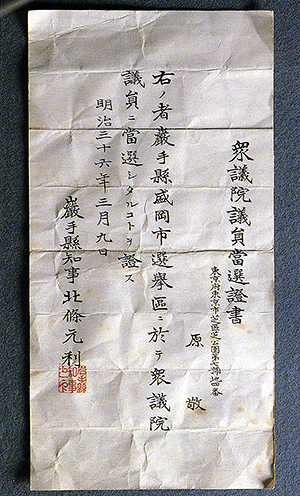 衆議院議員當選證書
東京府東京市芝區芝公園第七號地四番
原 敬
右ノ者巖手縣盛岡市選擧區ニ於テ衆議院
議員ニ當選シタルコトヲ證ス
明治三十六年三月九日
巖手縣知事北條元利